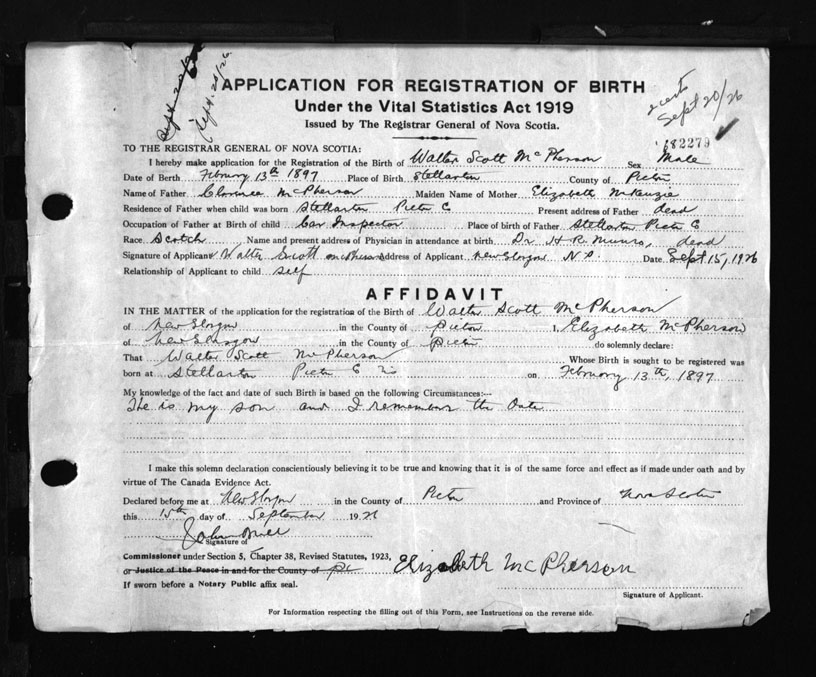 Sept. 20/26
Sept. 20/26.
APPLICATION FOR REGISTRATION OF BIRTH
Under the Vital Statistics Act 1919
Issued by The Registrar General of Nova Scotia.
Sept 20/26
182279
TO THE REGISTRAR GENERAL OF NOVA SCOTIA:
I hereby make application for the Registration of the Birth of Walter Scott McPherson Sex Male
Date of Birth February 13th 1897 Place of Birth Stellarton County of Pictou
Name of Father Clarence McPherson Maiden Name of Mother Elizabeth McKenzie
Residence of Father when child was born Stellarton Pictou C Present address of Father dead
Occupation of Father at Birth of child Car Inspector Place of birth of Father Stellarton Pictou C
Race Scotch Name and present address of Physician in attendance at birth Dr. H R. Munro, dead
Signature of Applicant Walter Scott McPherson Address of Applicant New Glasgow N S. Date Sept 15, 1926
Relationship of Applicant to child self
AFFIDAVIT
IN THE MATTER of the application for the registration of the Birth of Walter Scott McPherson
of New Glasgow in the County of Pictou I, Elizabeth McPherson
of New Glasgow in the County of Pictou do solemnly declare:
That Walter Scott McPherson Whose Birth is sought to be registered was
born at Stellarton Pictou C NS on February 13th, 1897
My knowledge of the fact and date of such Birth is based on the following Circumstances:—
He is my son and I remember the Date
I make this solemn declaration conscientiously believing it to be true and knowing that it is of the same force and effect as if made under oath and by
virtue of The Canada Evidence Act.
Declared before me at New Glasgow in the County of Pictou and Province of Nova Scotia
this 15th day of September 1926
Signature of
Commissioner under Section 5, Chapter 38, Revised Statutes, 1923,
or Justice of the Peace in and for the County of Elizabeth McPherson
If sworn before a Notary Public affix seal.
Signature of Applicant.
For Information respecting the filling out of this Form, see Instructions on the reverse side.